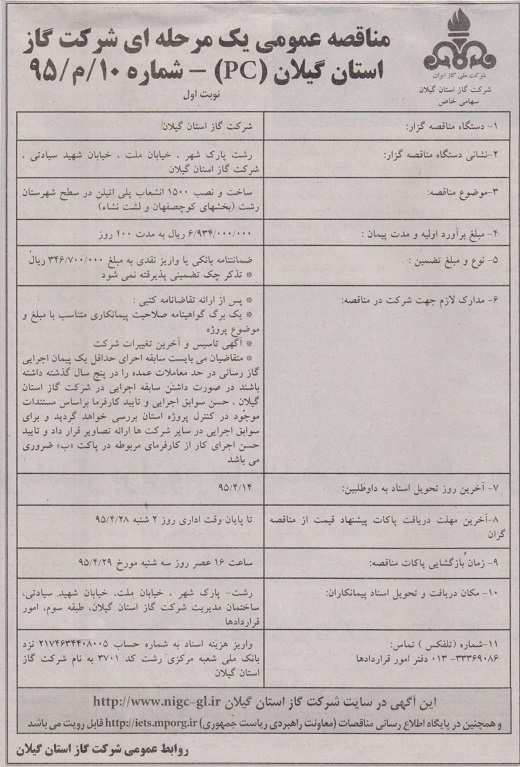 مناقصه عمومی یک مرحله ای شرکت گاز
استان گیلان (PC) – شماره ۱۰/م/۹۵
نوبت اول
شرکت ملی گاز ایران
شرکت گاز استان گیلان
سهامی خاص
۱- دستگاه مناقصه گزار:
شرکت گاز استان گیلان
۲-نشانی دستگاه مناقصه گزار:
رشت پارک شهر ، خیابان ملت ، خیابان شهید سیادتی ،
شرکت گاز استان گیلان
۳-موضوع مناقصه:
ساخت و نصب ۱۵۰۰ انشعاب پلی اتیلن در سطح شهرستان
رشت (بخشهای کوچصفهان و لشت نشاء)
۴- مبلغ برآورد اولیه و مدت پیمان :
۶/۹۳۴/۰۰۰/۰۰۰ ریال به مدت ۲۰۰ روز
۵- نوع و مبلغ تضمین :
ضمانتنامه بانکی یا واریز نقدی به مبلغ ۳۴۶/۷۰۰/۰۰۰ ریال
* تذکر چک تضمینی پذیرفته نمی شود
۶- مدارک لازم جهت شرکت در مناقصه:
* پس از ارائه تقاضانامه کتبی :
* یک برگ گواهینامه صلاحیت پیمانکاری متناسب با مبلغ و
موضوع پروژه
* آگهی تاسیس و آخرین تغییرات شرکت
* متقاضیان می بایست سابقه اجرای حداقل یک پیمان اجرایی
گاز رسانی در حد معاملات عمده را در پنج سال گذشته داشته
باشند در صورت داشتن سابقه اجرایی در شرکت گاز استان
گیلان ، حسن سوابق اجرایی و تایید کارفرما براساس مستندات
موجود در کنترل پروژه استان بررسی خواهد گردید و برای
سوابق اجرایی در سایر شرکت ها ارائه تصاویر قرار داد و تایید
حسن اجرای کار از کارفرمای مربوطه در پاکت «ب» ضروری
می باشد
۷- آخرین روز تحویل اسناد به داوطلبین:
۹۵/۴/۱۴
۸-آخرین مهلت دریافت پاکات پیشنهاد قیمت از مناقصه
گران
تا پایان وقت اداری روز ۲ شنبه ۹۵/۴/۲۸
۹- زمان بازگشایی پاکات مناقصه:
ساعت ۱۶ عصر روز سه شنبه مورخ ۹۵/۴/۲۹
۱۰- مکان دریافت و تحویل اسناد پیمانکاران:
رشت- پارک شهر ، خیابان ملت، خیابان شهید سیادتی،
ساختمان مدیریت شرکت گاز استان گیلان، طبقه سوم، امور
قراردادها
۱۱-شماره (تلفکس ) تماس:
۳۳۳۶۹۰۸۶- ۰۱۳ دفتر امور قراردادها
واریز هزینه اسناد به شماره حساب ۲۱۷۴۶۳۴۴۰۸۰۰۵ نزد
بانک ملی شعبه مرکزی رشت کد ۳۷۰۱ به نام شرکت گاز
استان گیلان
این آگهی در سایت شرکت گاز استان گیلان http://www.nigc-gl.ir
و همچنین در پایگاه اطلاع رسانی مناقصات (معاونت راهبردی ریاست جمهوری) http://iets.mporg.ir قابل رویت می باشد
روابط عمومی شرکت گاز استان گیلان